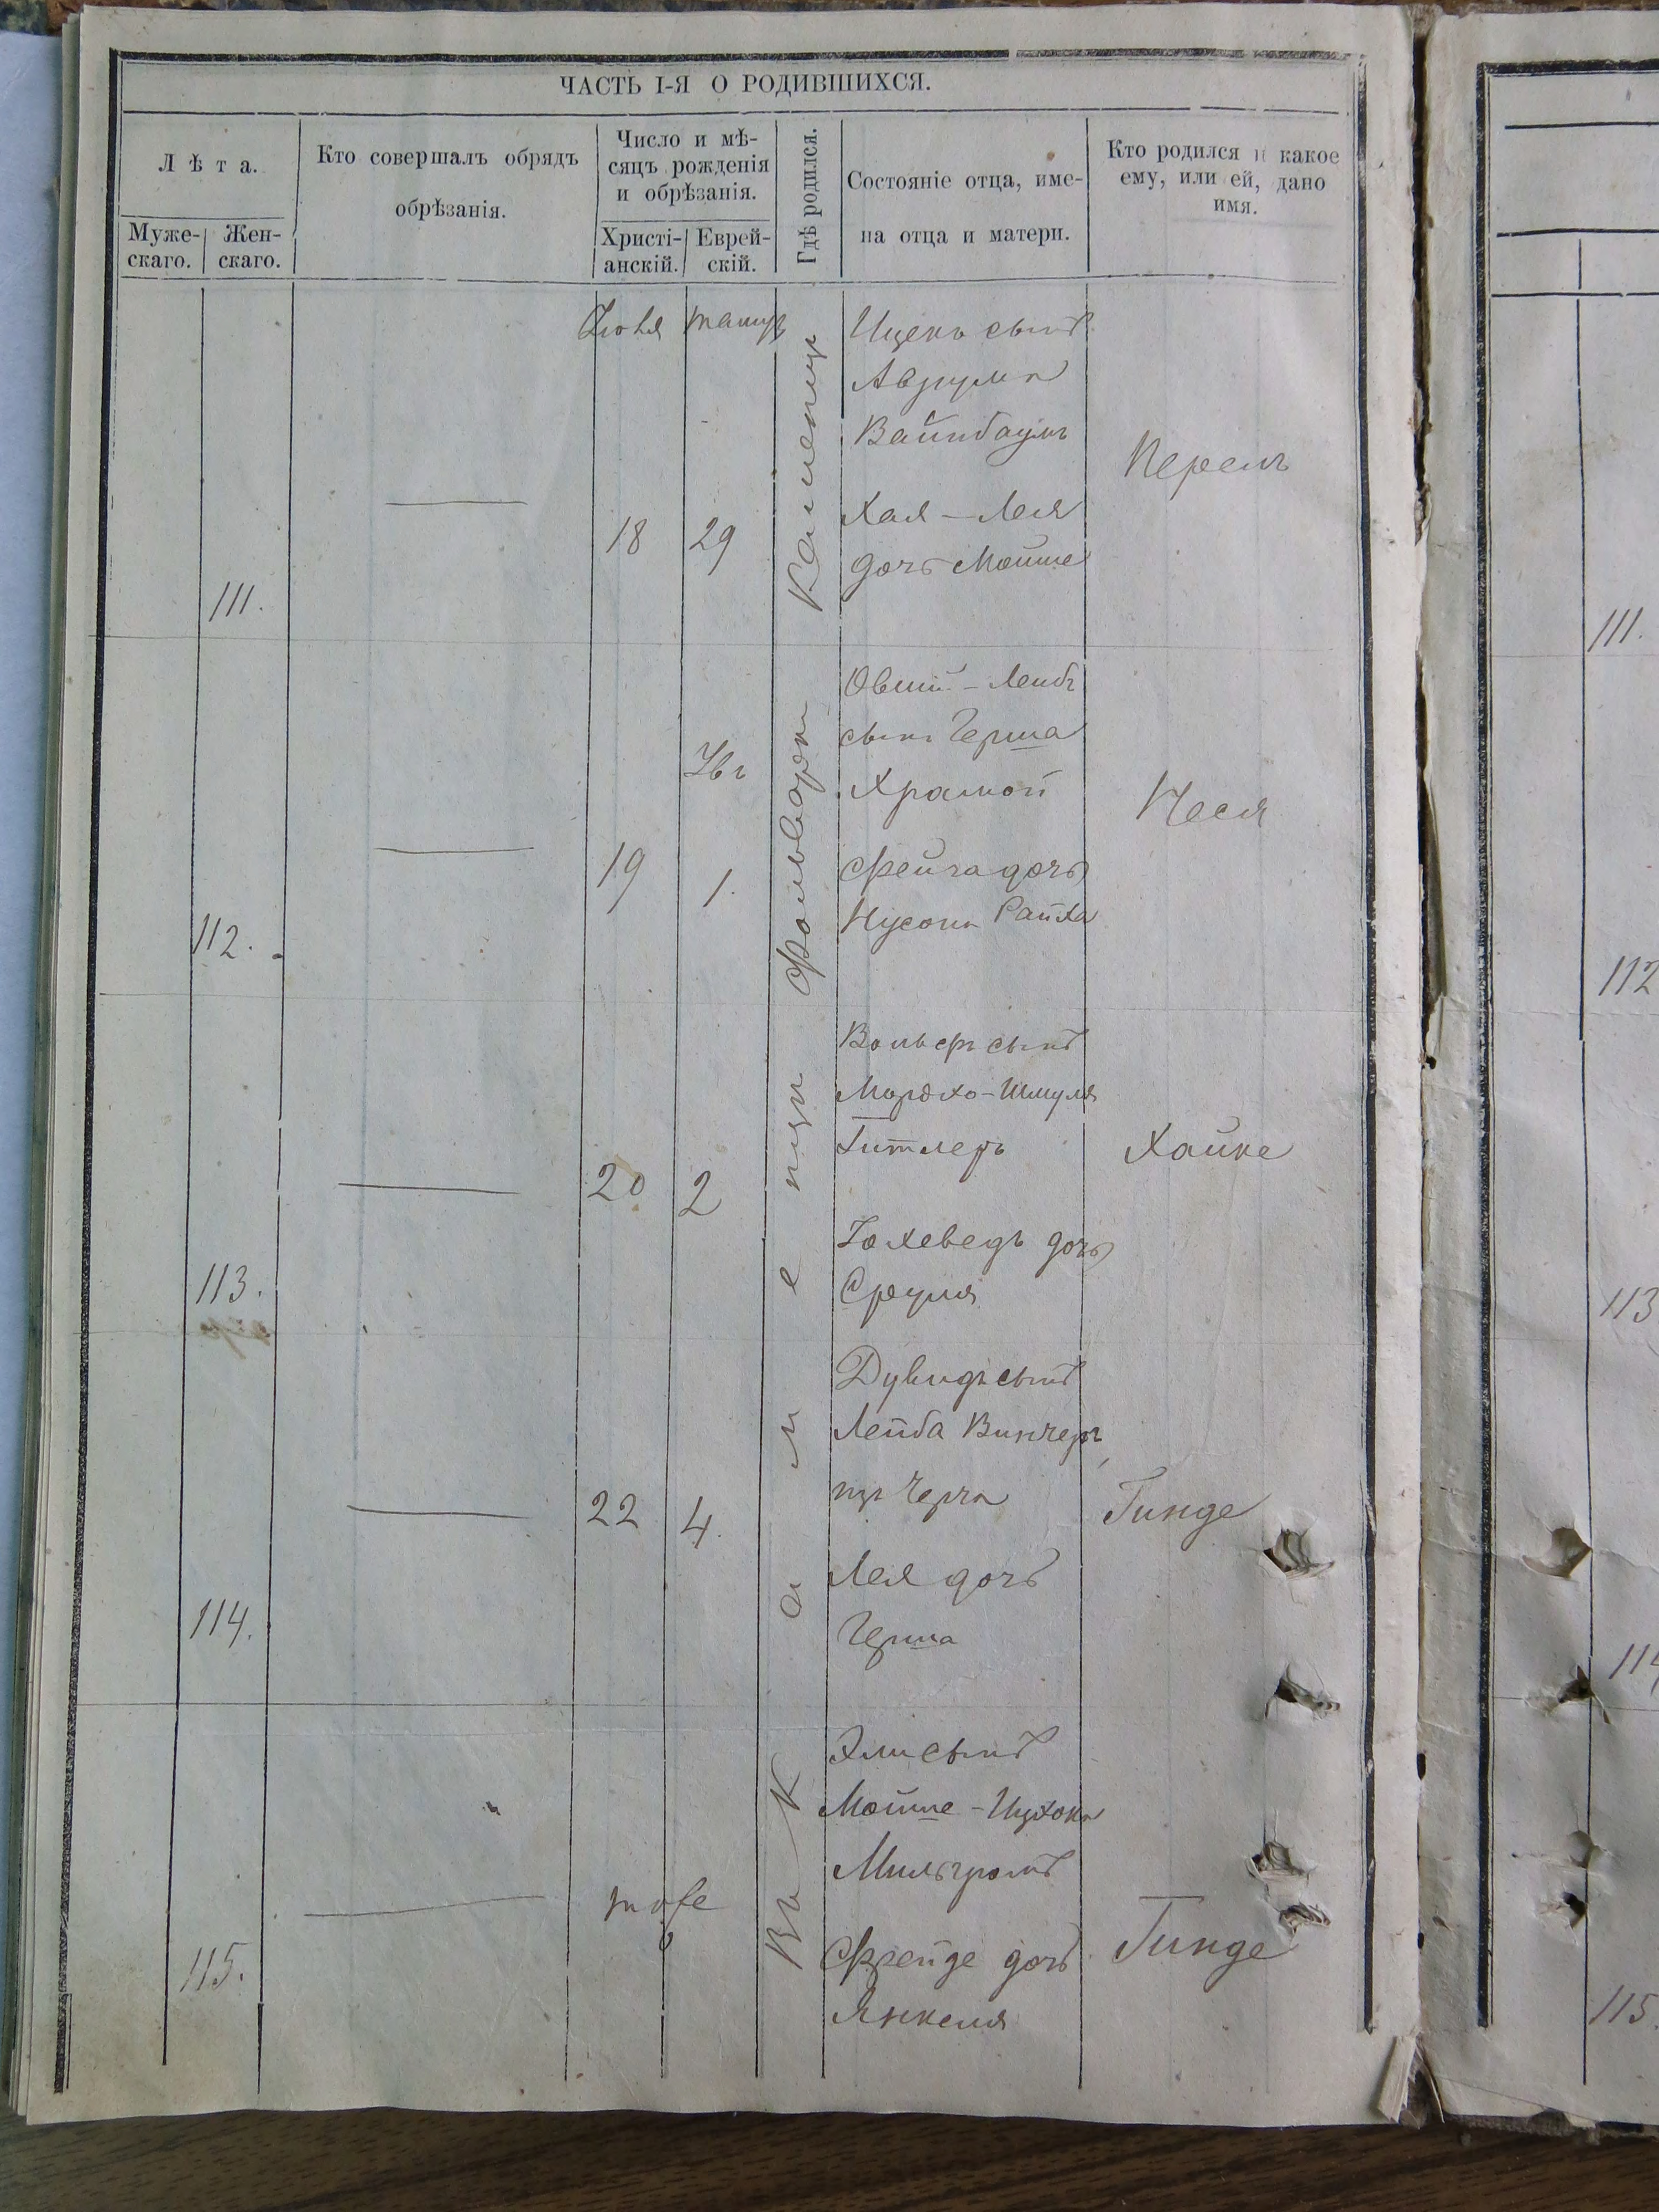 ЧАСТЬ I-Я О РОДИВШИХСЯ.
Лѣта.
Муже-
скаго.
Жен-
скаго.
Кто совершалъ обрядъ
обрѣзанія.
Число и мѣ-
сяцъ рожденія
и обрѣзанія.
Христі-
анскій.
Еврей-
скій.
Гдѣ родился.
Состояніе отца, име-
на отца и матери.
Кто родился и какое
ему, или ей, дано
имя.
111.
18
29
Каменецъ
Ицекъ сынъ
Аврума
Вайнбаумъ
Хая - Лея
дочь Мойше
Перель
112.
19
1.
Фольварки
Овшій - Лейбъ
сынъ Герша
Храмой
Фейга дочь
Нусона Райха
Песя
113.
20
2
Вольфъ сынъ
Мордхо - Шмуля
Гитлеръ
Іохеведъ дочь
Сруля
Хайке
114.
22
4.
Дувидъ сынъ
Лейба
Лея дочь
Герша
Гинде
115.
тоже
Эли сынъ
Мойше - Ицхока
Мильгромъ
Фрейде дочь
Янкеля
Гинде
111.
112
113
114
115.